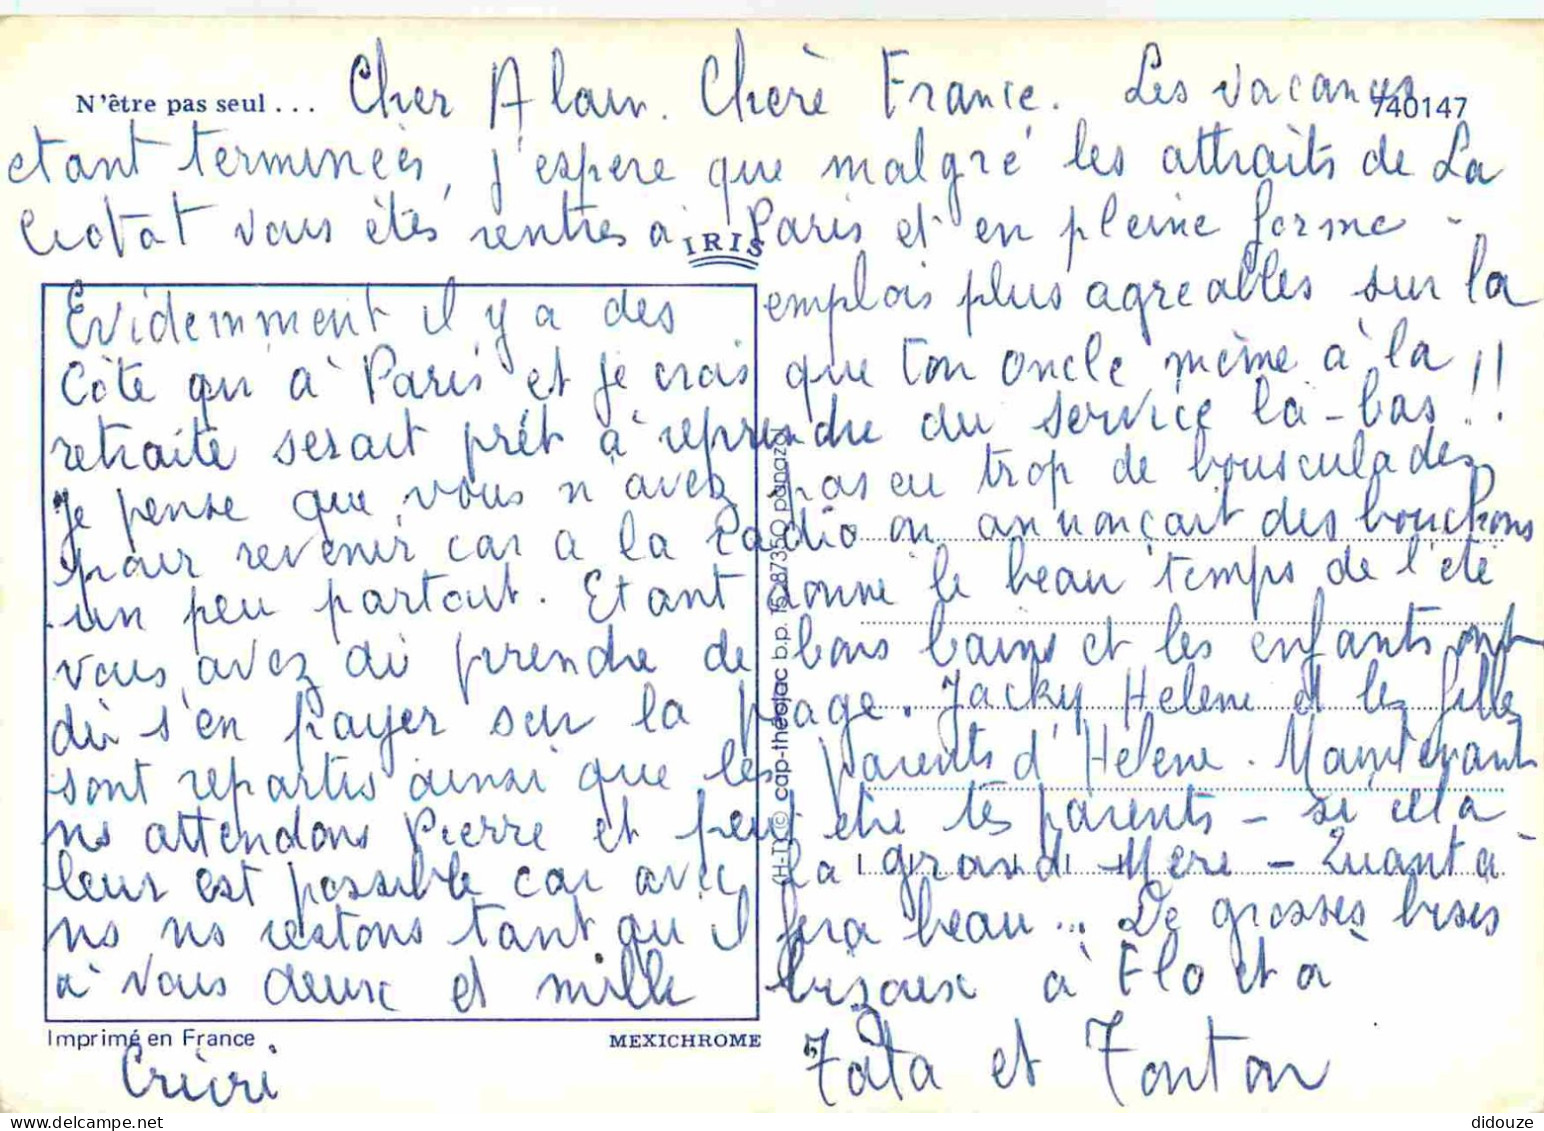 N'être pas seul ... Cher Alain. Chère France. Les vacances 740147
etant terminées, j'espere que malgré les attraits de La
Ciotat vous êtes rentrés à Paris et en pleine forme -
IRIS
Evidemment il y a des emplois plus agreables sur la
Côte qu'à Paris et je crois que ton oncle même à la
retraite serait prêt à reprendre du service là-bas !!
Je pense que vous n'avez pas eu trop de bousculades
pour revenir car à la radio on annonçait des bouchons
un peu partout. Etant donné le beau temps de l'été
vous avez dû prendre de bons bains et les enfants ont
dû s'en payer sur la plage. Jacky Helene et les filles
sont repartis ainsi que les parents d'Helene. Maintenant
ns attendons Pierre et peut être tes parents - si cela
leur est possible car avec la grand-Mère - Quant à
ns ns restons tant qu'il fera beau... De grosses bises
à vous deux et mille bisoux à Flo et à
Imprimé en France
MEXICHROME
Cricri
Tata et Tonton
(H-T) © cap-théojac b.p. 15 87350 panazol
didouze